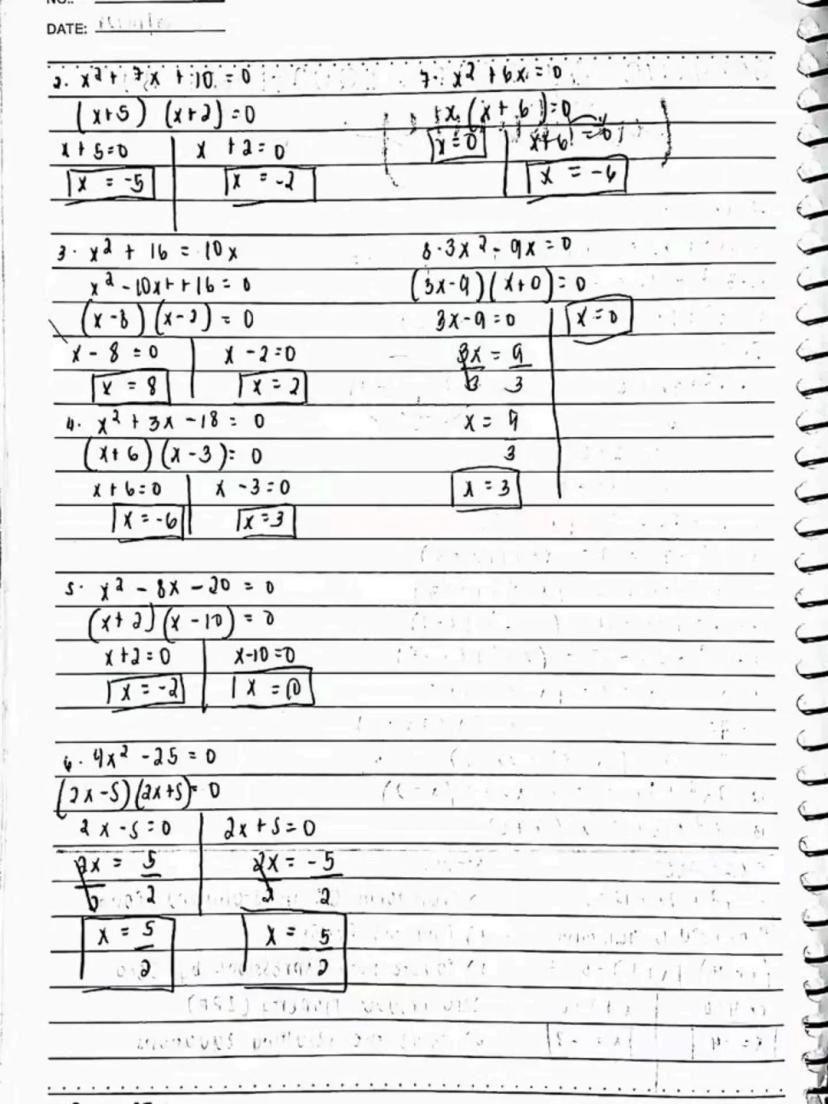 NO.:
DATE:
2. x² + 7x + 10 = 0
(x+5) (x+2) = 0
x + 5 = 0 | x + 2 = 0
x = -5 | x = -2
3. x² + 16 = 10x
x² - 10x + + 16 = 0
(x-8) (x-2) = 0
x - 8 = 0 | x - 2 = 0
x = 8 | x = 2
4. x² + 3x - 18 = 0
(x+6) (x-3) = 0
x + 6 = 0 | x - 3 = 0
x = -6 | x = 3
5. x² - 8x - 20 = 0
(x+2) (x-10) = 0
x+2 = 0 | x-10 = 0
x = -2 | x = 10
6. 4x² - 25 = 0
(2x-5) (2x+5) = 0
2x - 5 = 0 | 2x + 5 = 0
2x = 5 | 2x = -5
2 2 | 2 2
x = 5 | x = 5
2 | 2
7. x² + 6x = 0
+x (x + 6) = 0
x = 0 | x+6 = 0
x = -6
8. 3x² - 9x = 0
(3x-9) (x+0) = 0
3x-9 = 0 | x = 0
3x = 9
3 3
x = 9
3
x = 3